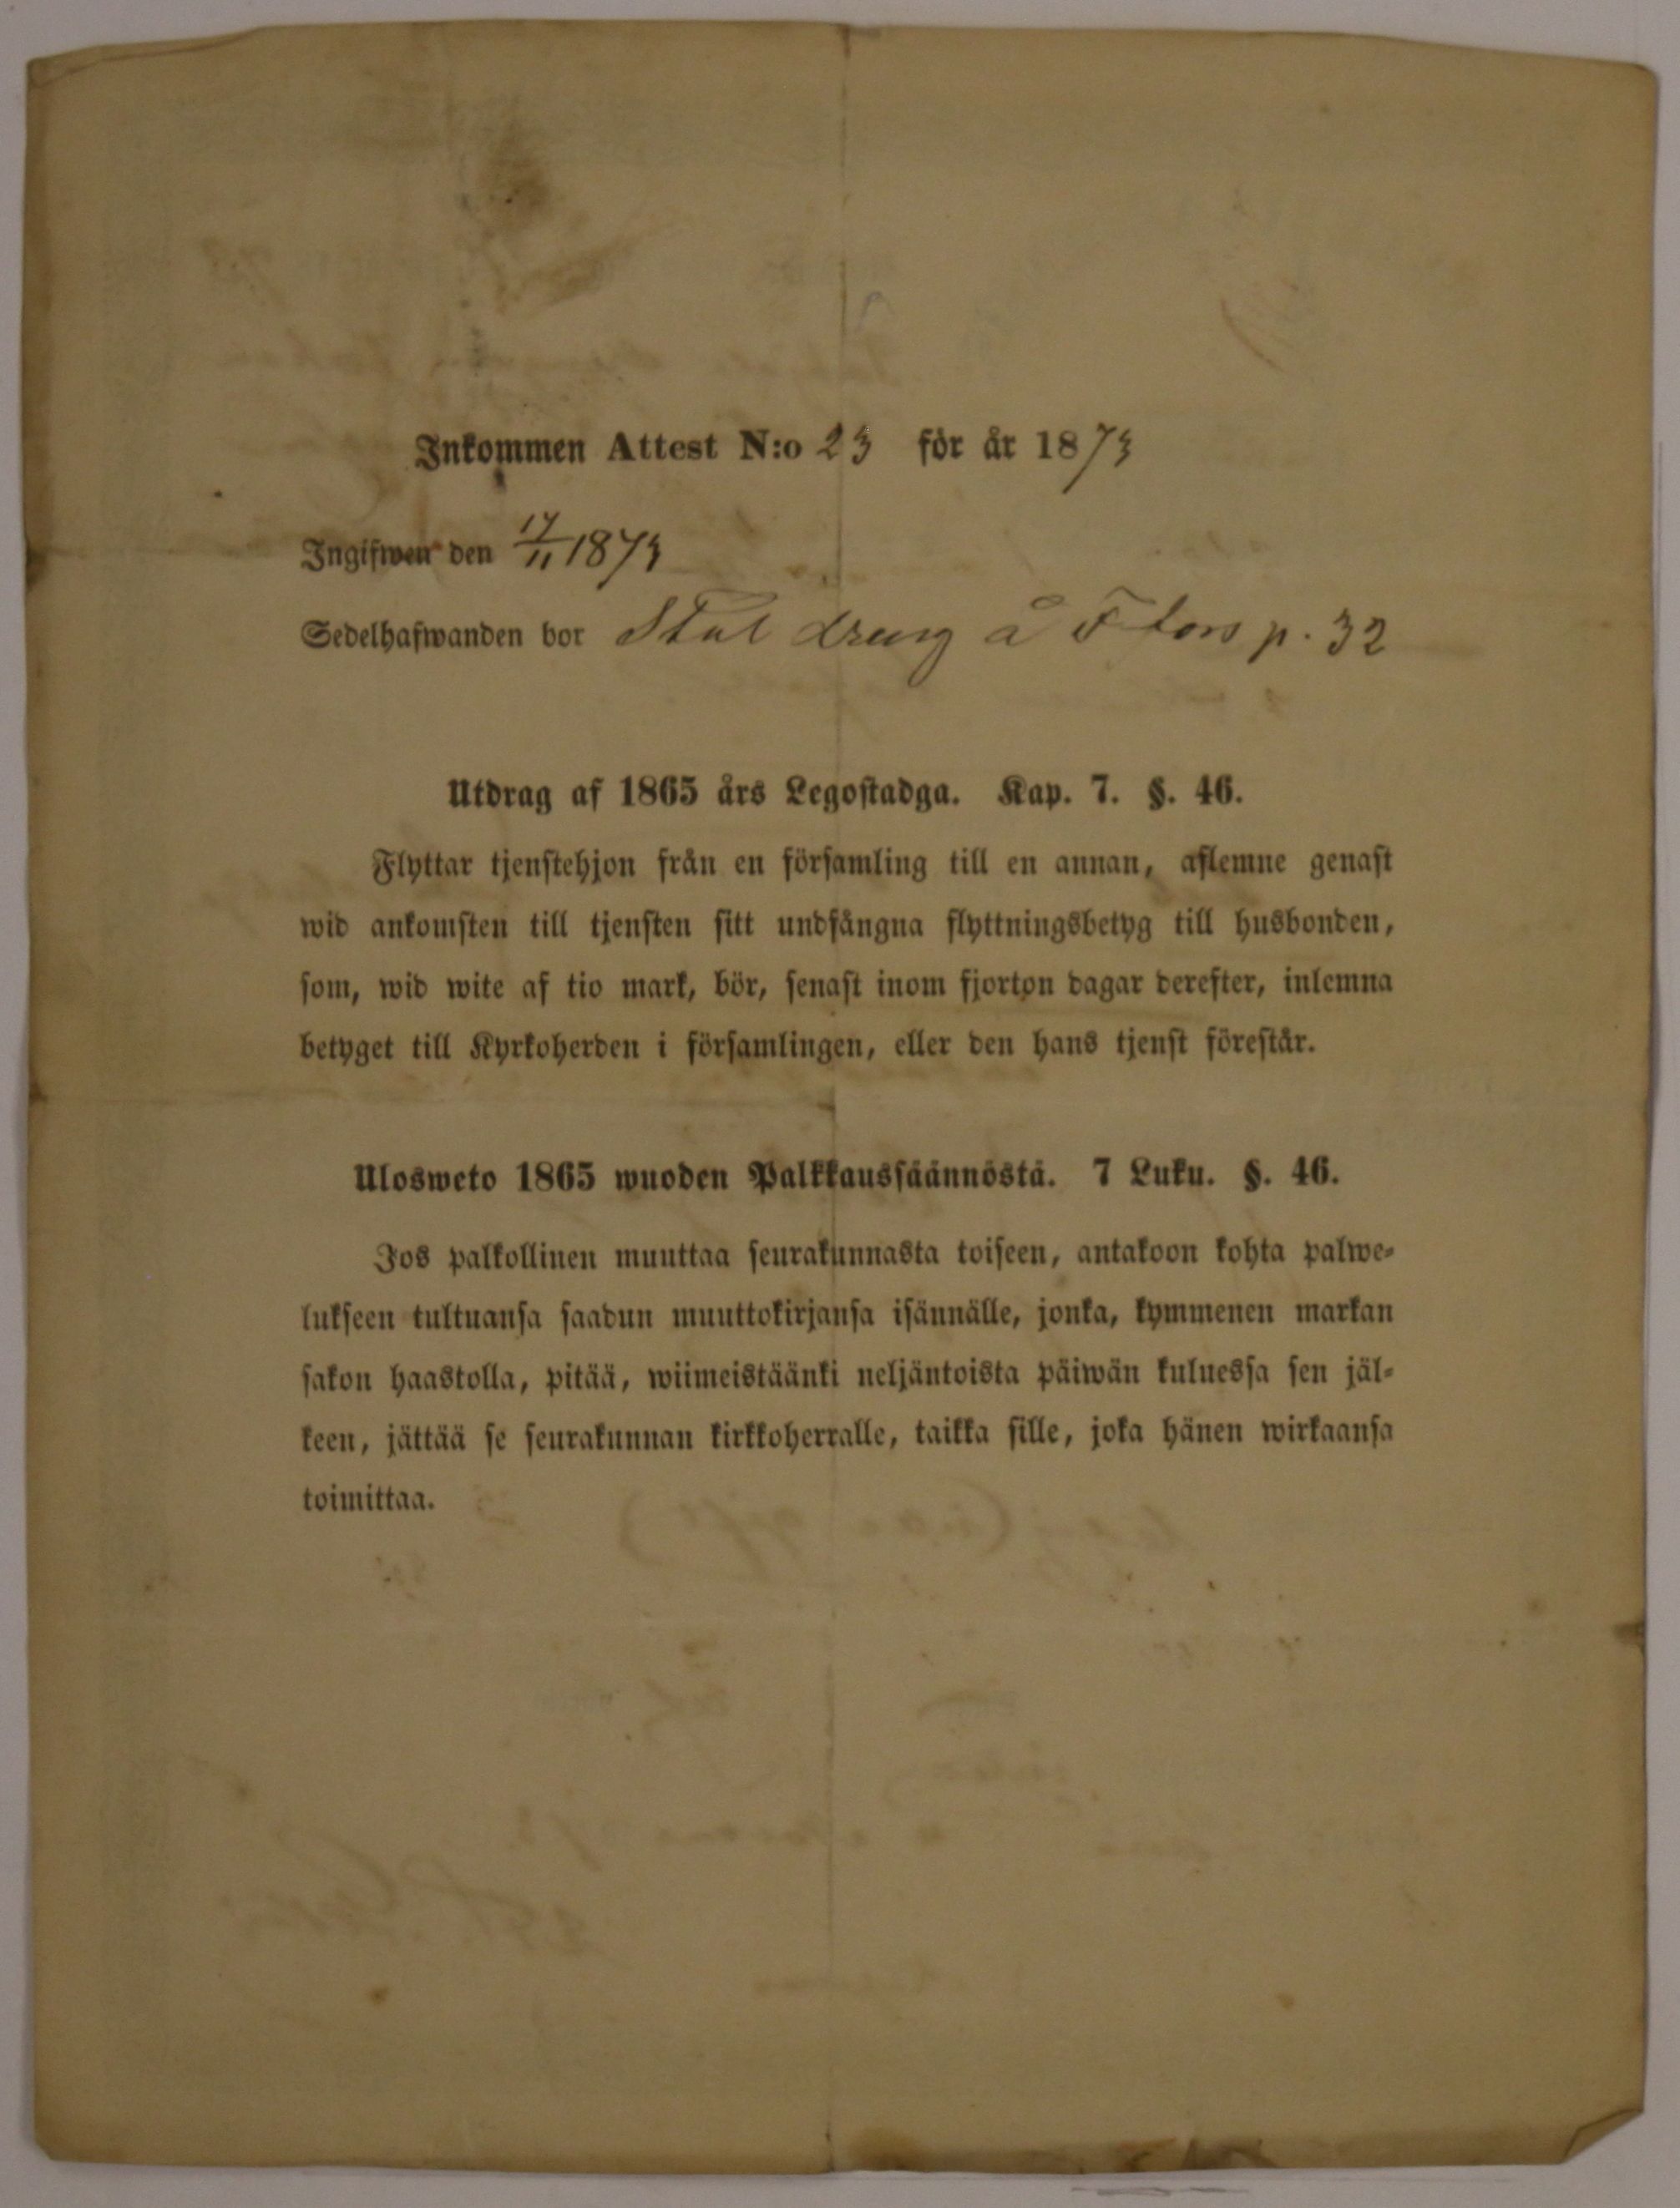 Inkommen Attest N:o 23 för år 1873
Ingifwen den 17/11 1873
Sedelhafwanden bor Stal dreng å F fors p. 32
Utdrag af 1865 års Legostadga. Kap. 7. §. 46.
Flyttar tjenstehjon från en församling till en annan, aflemne genast
wid ankomsten till tjensten sitt undfångna flyttningsbetyg till husbonden,
som, wid wite af tio mark, bör, senast inom fjorton dagar derefter, inlemna
betyget till Kyrkoherden i församlingen, eller den hans tjenst förestår.
Ulosweto 1865 wuoden Palkkaussäännöstä. 7 Luku. §. 46.
Jos palkollinen muuttaa seurakunnasta toiseen, antakoon kohta palwe-
lukseen tultuansa saadun muuttokirjansa isännälle, jonka, kymmenen markan
sakon haastolla, pitää, wiimeistäänki neljäntoista päiwän kuluessa sen jäl-
keen, jättää se seurakunnan kirkkoherralle, taikka sille, joka hänen wirkaansa
toimittaa.